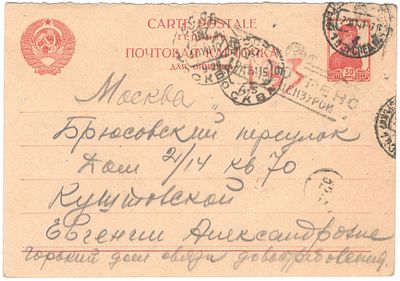 CARTE POSTALE
ПОЧТОВАЯ КАРТОЧКА
МОСКВА
ЦЕНЗУРОЙ
30
Москва
Брюсовский переулок
Дом 2/14 кв 70
Куштовской
Евгении Александровне
Горький дом связи до востребования.